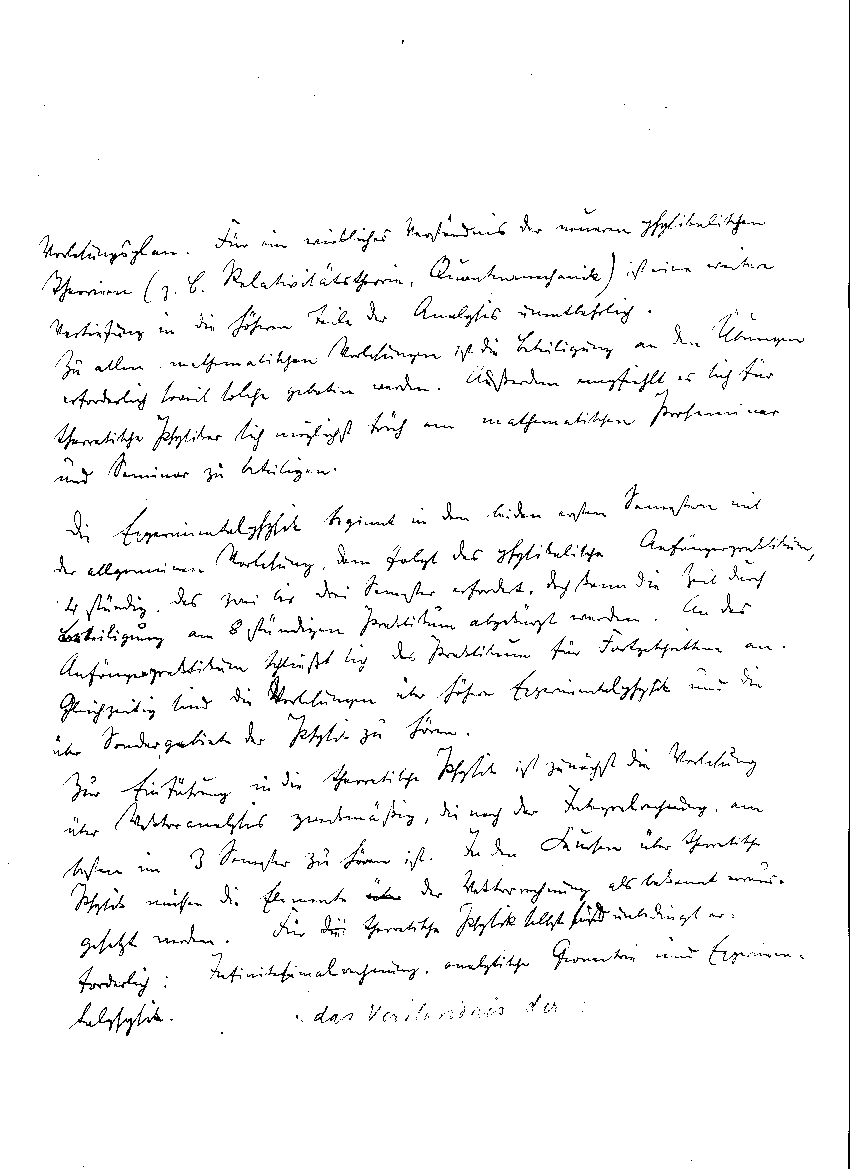 Vorlesungsplan. Für ein wirkliches Verständnis der neueren physikalischen
Theorien (z. B. Relativitätstheorie, Quantenmechanik) ist eine weitere
Vertiefung in die höheren Teile der Analysis unentbehrlich.
Zu allen mathematischen Vorlesungen ist die Beteiligung an den Übungen
erforderlich soweit solche geboten werden. Außerdem empfiehlt es sich für
theoretische Physiker sich möglichst früh am mathematischen Proseminar
und Seminar zu beteiligen.
Die Experimentalphysik beginnt in den beiden ersten Semestern mit
der allgemeinen Vorlesung, dem folgt das physikalische Anfängerpraktikum,
4 stündig, das zwei bis drei Semester erfordert, doch kann die Zeit durch
Beteiligung am 8 stündigen Praktikum abgekürzt werden. An das
Anfängerpraktikum schließt sich das Praktikum für Fortgeschrittene an.
Gleichzeitig sind die Vorlesungen über höhere Experimentalphysik und die
über Sondergebiete der Physik zu hören.
Zur Einführung in die theoretische Physik ist zunächst die Vorlesung
über Vektoranalysis zweckmäßig, die nach der Integralrechnung, am
besten im 3 Semester zu hören ist. In den Kursen über theoretische
Physik müssen die Elemente über der Vektorrechnung als bekannt voraus-
gesetzt werden. Für die theoretische Physik selbst sind unbedingt er-
forderlich: Infinitesimalrechnung, analytische Geometrie und Experimen-
talphysik. das Verständnis der